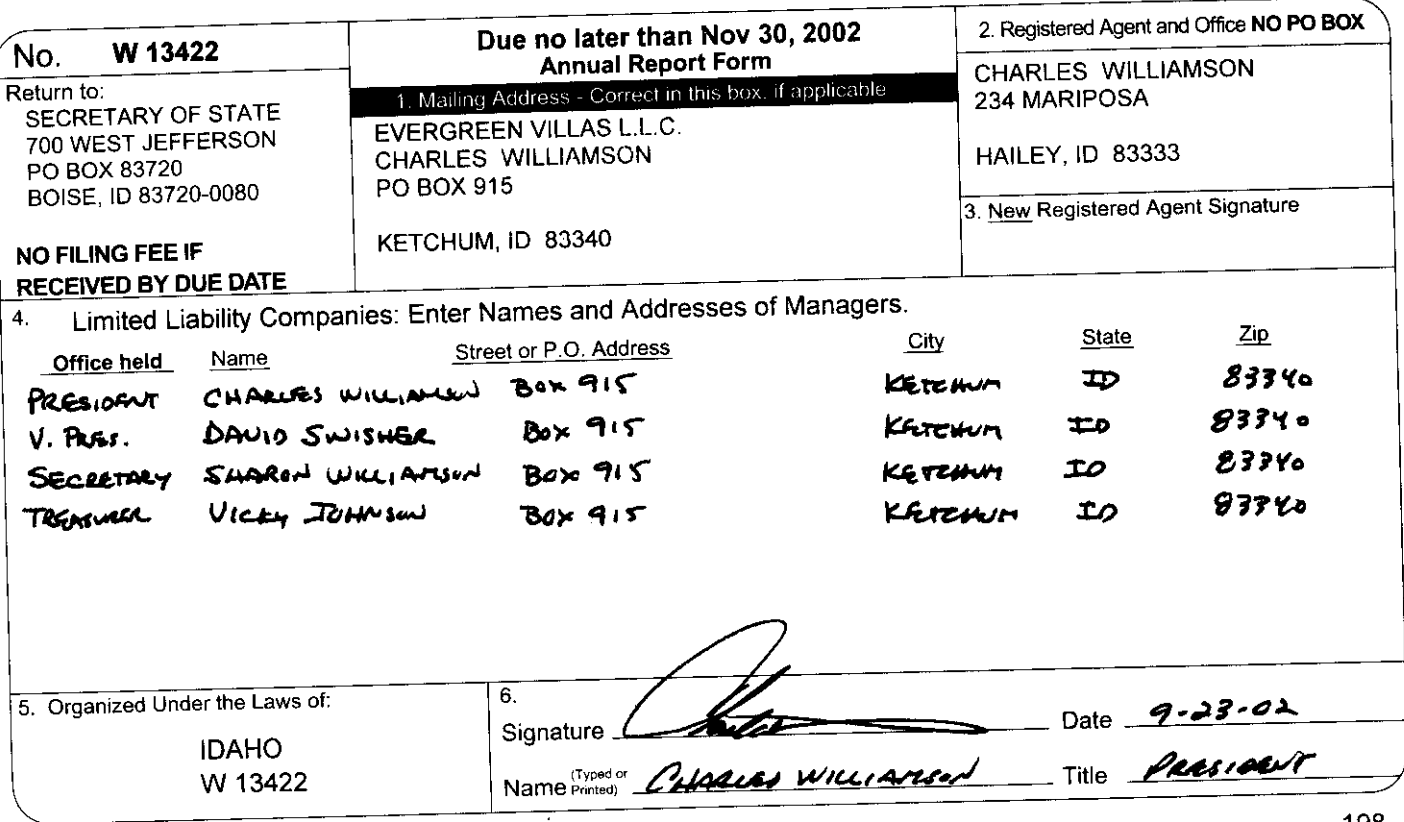 No. W 13422
Return to:
SECRETARY OF STATE
700 WEST JEFFERSON
PO BOX 83720
BOISE, ID 83720-0080
NO FILING FEE IF
RECEIVED BY DUE DATE
Due no later than Nov 30, 2002
Annual Report Form
1. Mailing Address - Correct in this box, if applicable
EVERGREEN VILLAS L.L.C.
CHARLES WILLIAMSON
PO BOX 915
KETCHUM, ID 83340
2. Registered Agent and Office NO PO BOX
CHARLES WILLIAMSON
234 MARIPOSA
HAILEY, ID 83333
3. New Registered Agent Signature
4. Limited Liability Companies: Enter Names and Addresses of Managers.
Office held Name Street or P.O. Address City State Zip
PRESIDENT CHARLES WILLIAMSON BOX 915 KETCHUM ID 83340
V. PRES. DAVID SWISHER BOX 915 KETCHUM ID 83340
SECRETARY SHARON WILLIAMSON BOX 915 KETCHUM ID 83340
TREASURER VICKY JOHNSON BOX 915 KETCHUM ID 83340
5. Organized Under the Laws of:
IDAHO
W 13422
6.
Signature Date 9-23-02
Name (Typed or Printed) CHARLES WILLIAMSON Title PRESIDENT